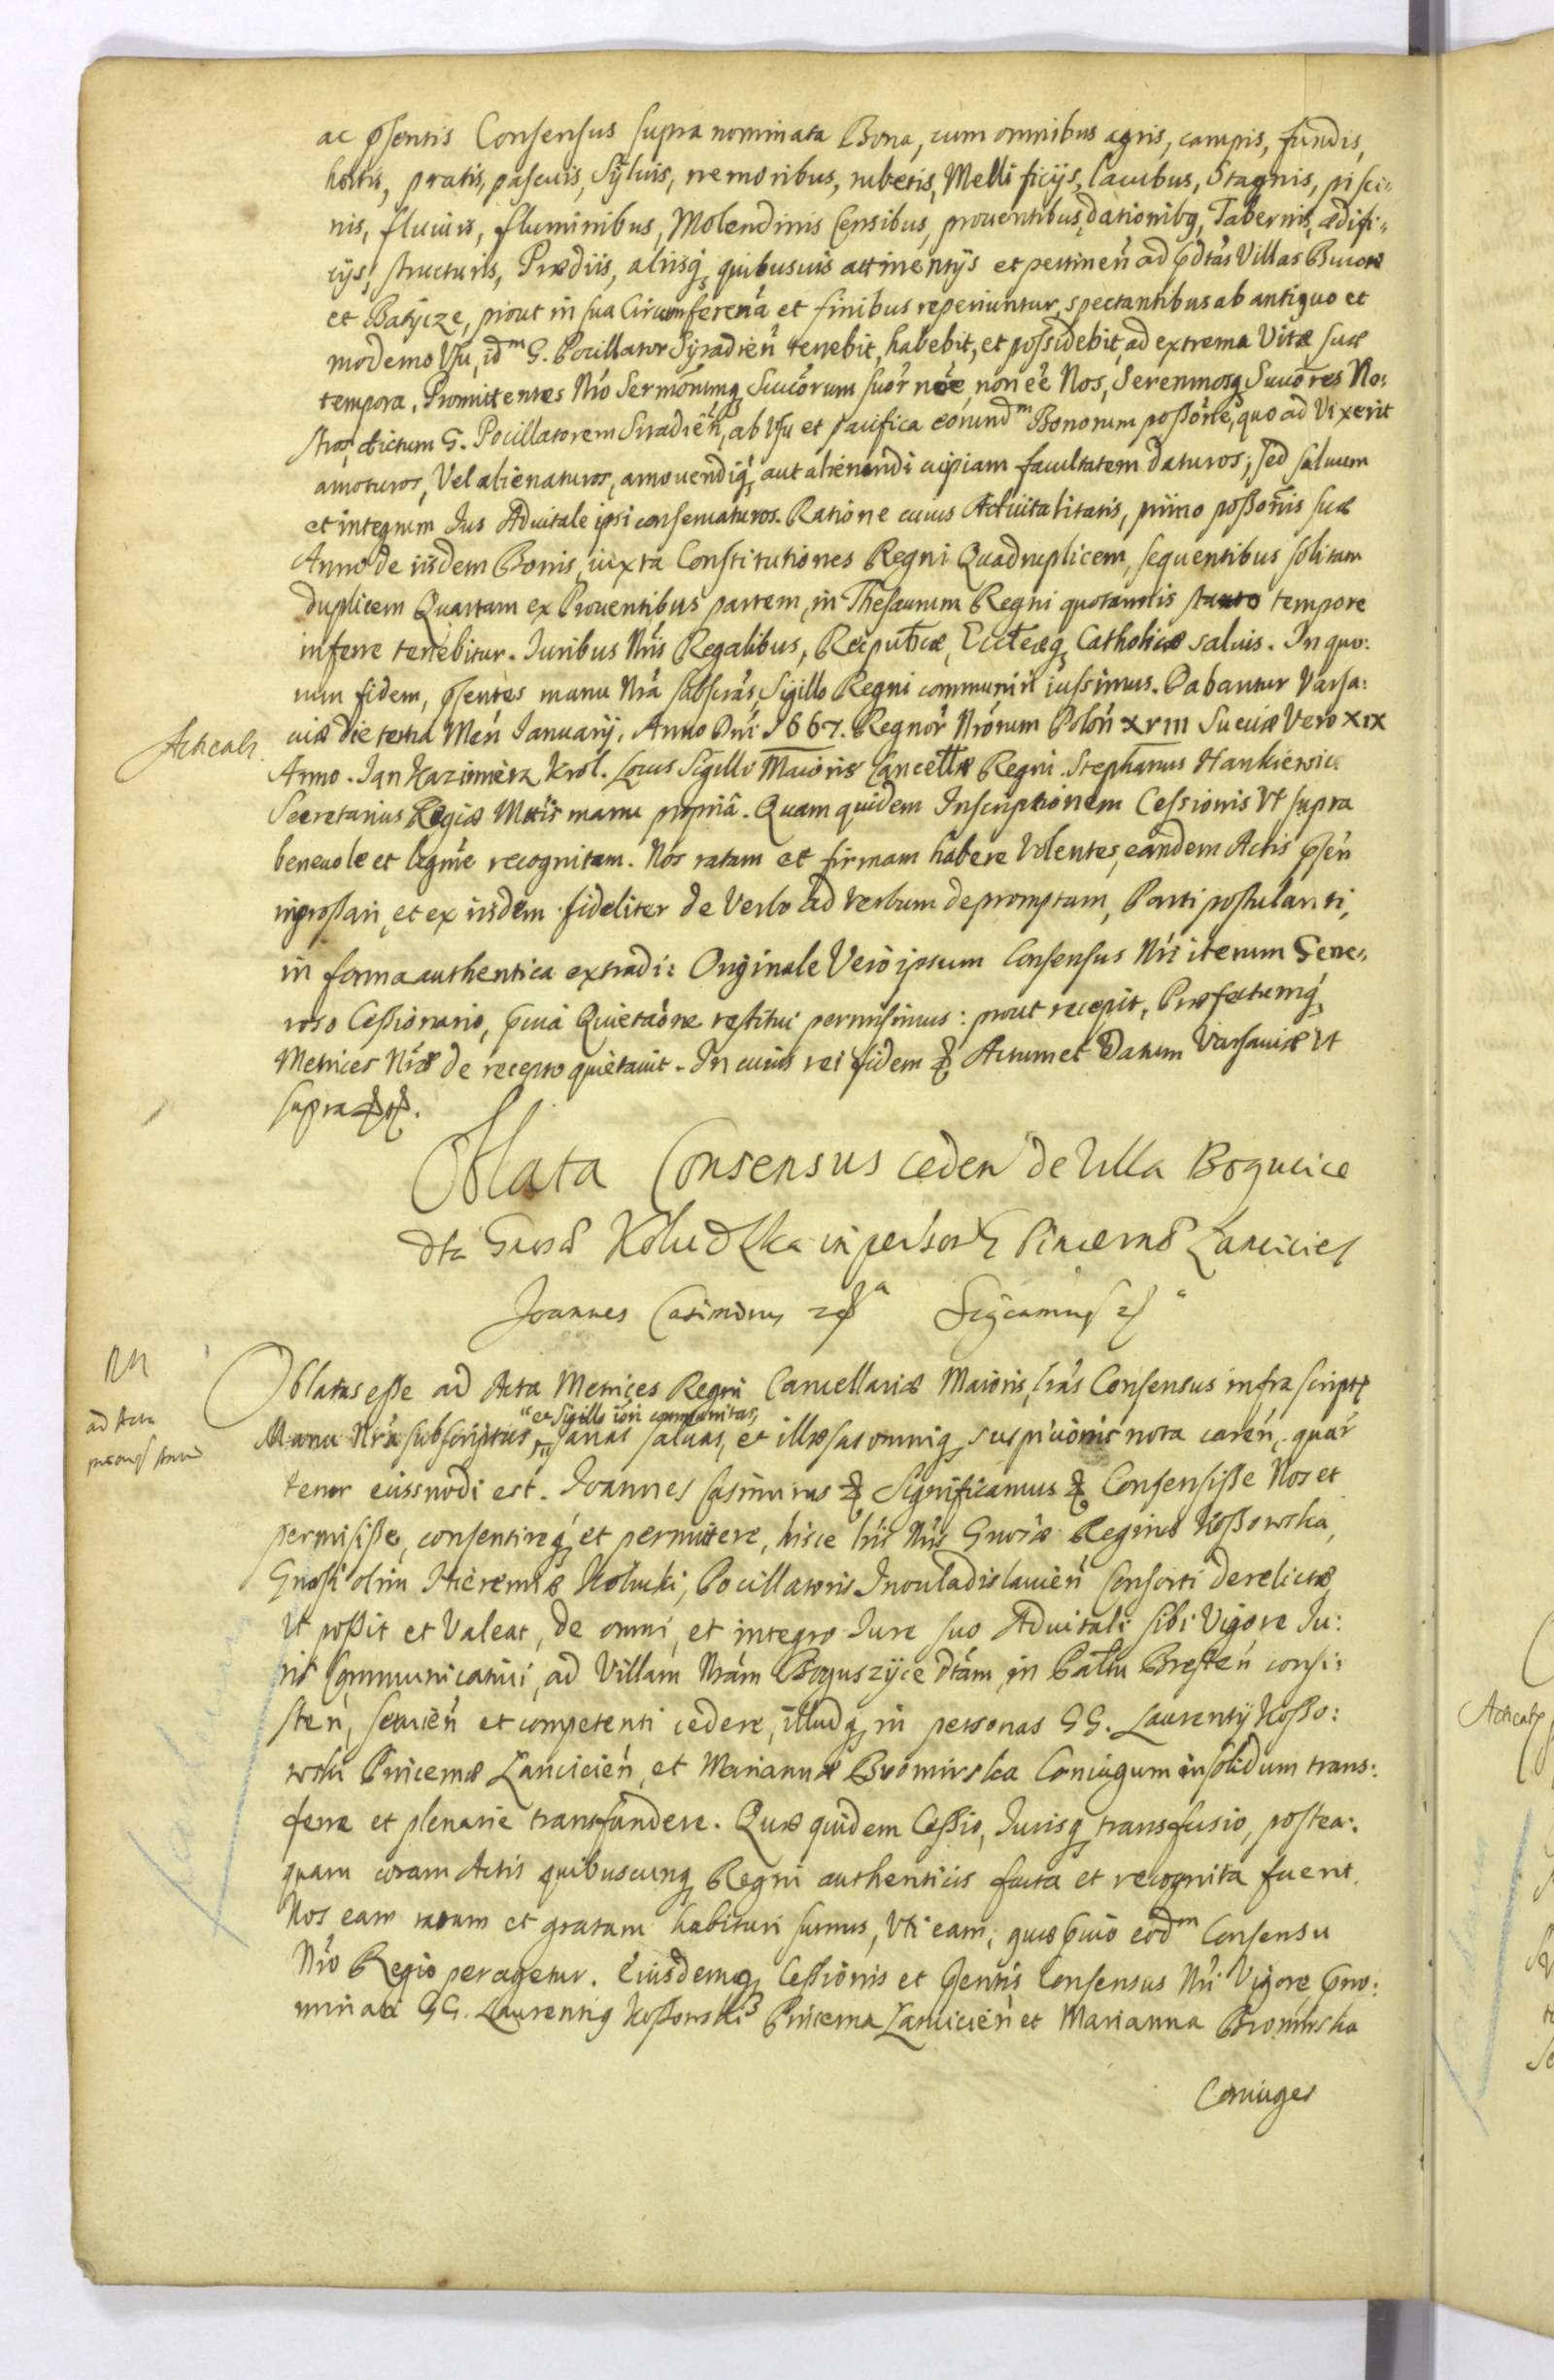 ac pſentis Conſenſus ſupra nominata Bona, cum omnibus agris, campis, fundis,
hortis, pratis, paſcuis, Sÿluis, nemoribus, rubetis, Mellificijs, lacubus, Stagnis, piſci:
nis, fluuijs, fluminibus, Molendinis Cenſibus, prouentibus, dationibq, Tabernis, ædifi:
cijs, ſtructuris, Prædiis, aliisq quibusuis attinentijs et pertineń ad pdtas Villas
et Batÿcze, prout in ſua Circumferena et finibus reperiuntur, spectantibus ab antiquo et
moderno Vſu, idm G. Pocillator Sÿradień tenebit, habebit, et poſsidebit, ad extrema Vitæ ſuæ
tempora. Promittentes Nro Sermorumq Succorum ſuor noe, non ee Nos, Serenmosq Succores No:
ſtros, dictum G. Pocillatorem Siradień, ab Vſu et pacifica eorundm Bonorum poſsoñe, quo ad Vixerit
amoturos, Vel alienaturos, amouendiq aut alienandi cuipiam facultatem daturos; ſed ſaluum
et integrum Jus Aduitale ipſi conſeruaturos. Ratione cuius Aduitalitatis, primo poſsonis ſuæ
Anno de iisdem Bonis, iuxta Conſtitutiones Regni Quadruplicem, ſequentibus ſolitam
duplicem Quartam ex Prouentibus partem, in Theſaurum Regni quotannis tempore
inferre tenebitur. Juribus Nris Regalibus, Reipublicæ, Eccleæq Catholicæ saluis. In quo:
rum fidem, pſentes manu Nra ſubſcras, Sigillo Regni communiri iuſsimus. Dabantur Varſa:
uiæ die tertia Meń Januarij. Anno Dni 1667. Regnor Nrorum Poloń XVIII Sueciæ Vero XIX
Acticatr.
Anno. Jan Kazimierz Krol. Locus Sigilli Maioris Cancellæ Regni. Stephanus Hankiewicz
Secretarius Regiæ Mttis manu propriâ. Quam quidem Inſcriptionem Ceſsionis Vt ſupra
beneuole et legme recognitam. Nos ratam et firmam habere Volentes, eandem Actis pſeń
ingroſsari, et ex iisdem fideliter de Verbo ad Verbum depromptam, Parti poſtulanti,
in forma authentica extradi: Originale Vero ipsum Conſenſus Nri iterum Gene:
roso Ceſsionario, puia Quietaone reſtitui permiſimus: prout recepit, Præfectumq
Metrices Nræ de recepto quietauit. In cuius rei fidem & Actum et Datum Varſauiæ Vt
ſupra &&.
Oblata Consensus ceden de Villa Bogucice
dta Grosæ Kołudzka in persona Pincernæ Lancicien
Joannes Casimirus Significamus
RM
ad Acta
Oblatas eſse ad Acta Metrices Regni Cancellariæ Maioris, lras Conſenſus infraſcripti
Manu Nra ſubſcriptas, et Sigillo communitas, sanas ſaluas, et illæſas omniq suspicionis nota careń, quar
tenor eiusmodi est. Joannes Caſimirus & Significamus & Conſenſiſse Nos et
permiſiſse, conſentireq et permittere, hisce lris Nris Gnorſæ Reginæ Koſsowska,
Gnoſi olim Hieremiæ Kołucki, Pocillatoris Inouladislauień Conſorti derelictæ,
Vt poſsit et Valeat, de omni, et integro Jure ſuo Aduitali ſibi Vigore Ju:
ris Communicatiui, ad Villam Nram Boguszÿce dtam, in Pałtu Breſteń conſi:
ſteń, ſeruień et competenti cedere, illudq, in personas GG. Laurentij Koſso:
wski Pincernæ Lancicień, et Mariannæ Bromirska Coniugum inſolidum trans:
ferre et plenarie transfundere. Quæ quidem Ceſsio, Jurisq transfusio, poſtea:
quam coram Actis quibuscunq Regni authenticis facta et recognita fuerit.
Nos eam ratam et gratam habituri ſumus, Vti eam, quæ puio eodm Conſenſu
Nro Regio peragetur. Eiusdemq Ceſsionis et pſentis Conſenſus Nri Vigore, pno:
minati GG. Laurentiq Koſsowski Pincerna Lancicień et Marianna Bromirska
Coniuges
Acticatr